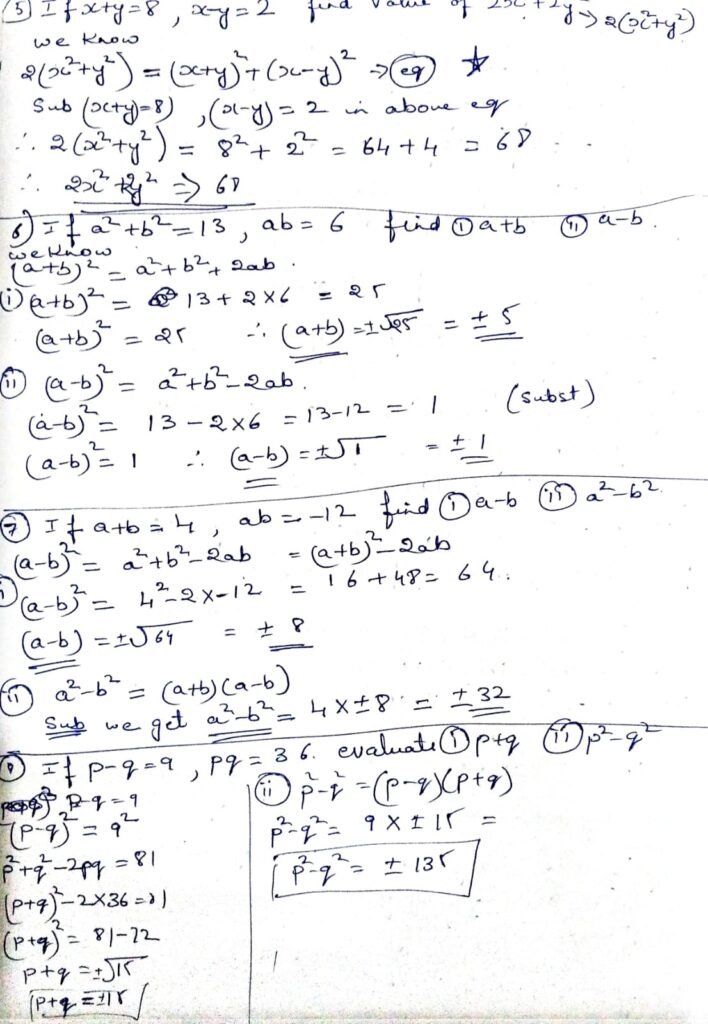 5) If x+y=8, x-y=2 find value of 2x²+2y² → 2(x²+y²)
we know
2(x²+y²) = (x+y)²+(x-y)² ⇒ (eq) ☆
Sub (x+y)=8), (x-y)=2 in above eq
∴ 2(x²+y²) = 8²+2² = 64+4 = 68
∴ 2x²+2y² ⇒ 68
6) If a²+b²=13, ab=6 find (i) a+b (ii) a-b.
we know
(a+b)² = a²+b²+2ab.
(i) (a+b)² = 13+2×6 = 25
(a+b)² = 25 ∴ (a+b) = ±√25 = ±5
(ii) (a-b)² = a²+b²-2ab.
(a-b)² = 13-2×6 = 13-12 = 1 (subst)
(a-b)² = 1 ∴ (a-b) = ±√1 = ±1
(7) If a+b=4, ab=-12 find (i) a-b (ii) a²-b²
(a-b)² = a²+b²-2ab = (a+b)²-2ab
(i) (a-b)² = 4²-2×-12 = 16+48= 64.
(a-b) = ±√64 = ±8
(ii) a²-b² = (a+b)(a-b)
Sub we get a²-b² = 4×±8 = ±32
If p-q=9, pq=36. evaluate (i) p+q (ii) p²-q²
p-q=9
(p-q)² = 9²
p²+q²-2pq=81
(p+q)²-2×36=81
(p+q)² = 81-72
p+q = ±√15
p+q = ±15
(ii) p²-q² = (p-q)(p+q)
p²-q² = 9×±15 =
p²-q² = ±135